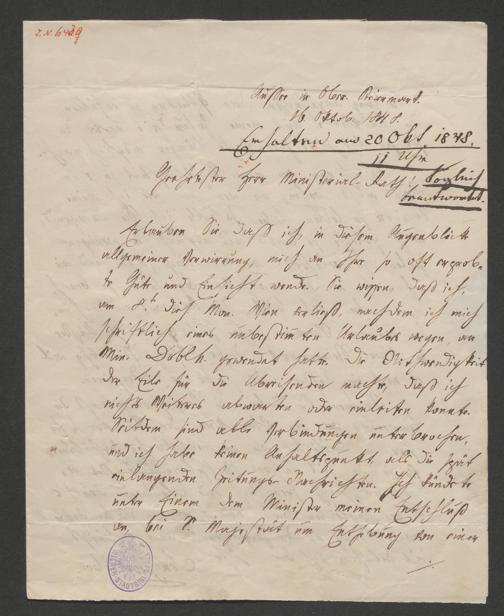 I.N. 6439
Aussee in Ober Steiermark.
16 Oktob. 1848.
Erhalten am 20 Okt 1848.
11 Uhr
Geehrtester Herr Ministerial-Rath! sogleich
beantwortet.
Erlauben Sie, daß ich, in diesem Augenblick
allgemeiner Verwirrung, mich an Ihre so oft erprob-
te Güte und Einsicht wende. Sie wissen, daß ich
am 8t. dieß Mon. Wien verließ, nachdem ich mich
schriftlich eines unbestimmten Urlaubes wegen, an
Min. Doblh. gewendet hatte. Die Nothwendigkeit
der Eile für die Abreisenden machte, daß ich
nichts Weiteres abwarten oder einleiten konnte.
Seitdem sind alle Verbindungen unterbrochen,
und ich habe keinen Anhaltspunkt, als die spät
einlangenden Zeitungs-Nachrichten. Ich kündete
unter Einem dem Minister meinen Entschluß
an, bei Sr. Majestät um Enthebung von einer